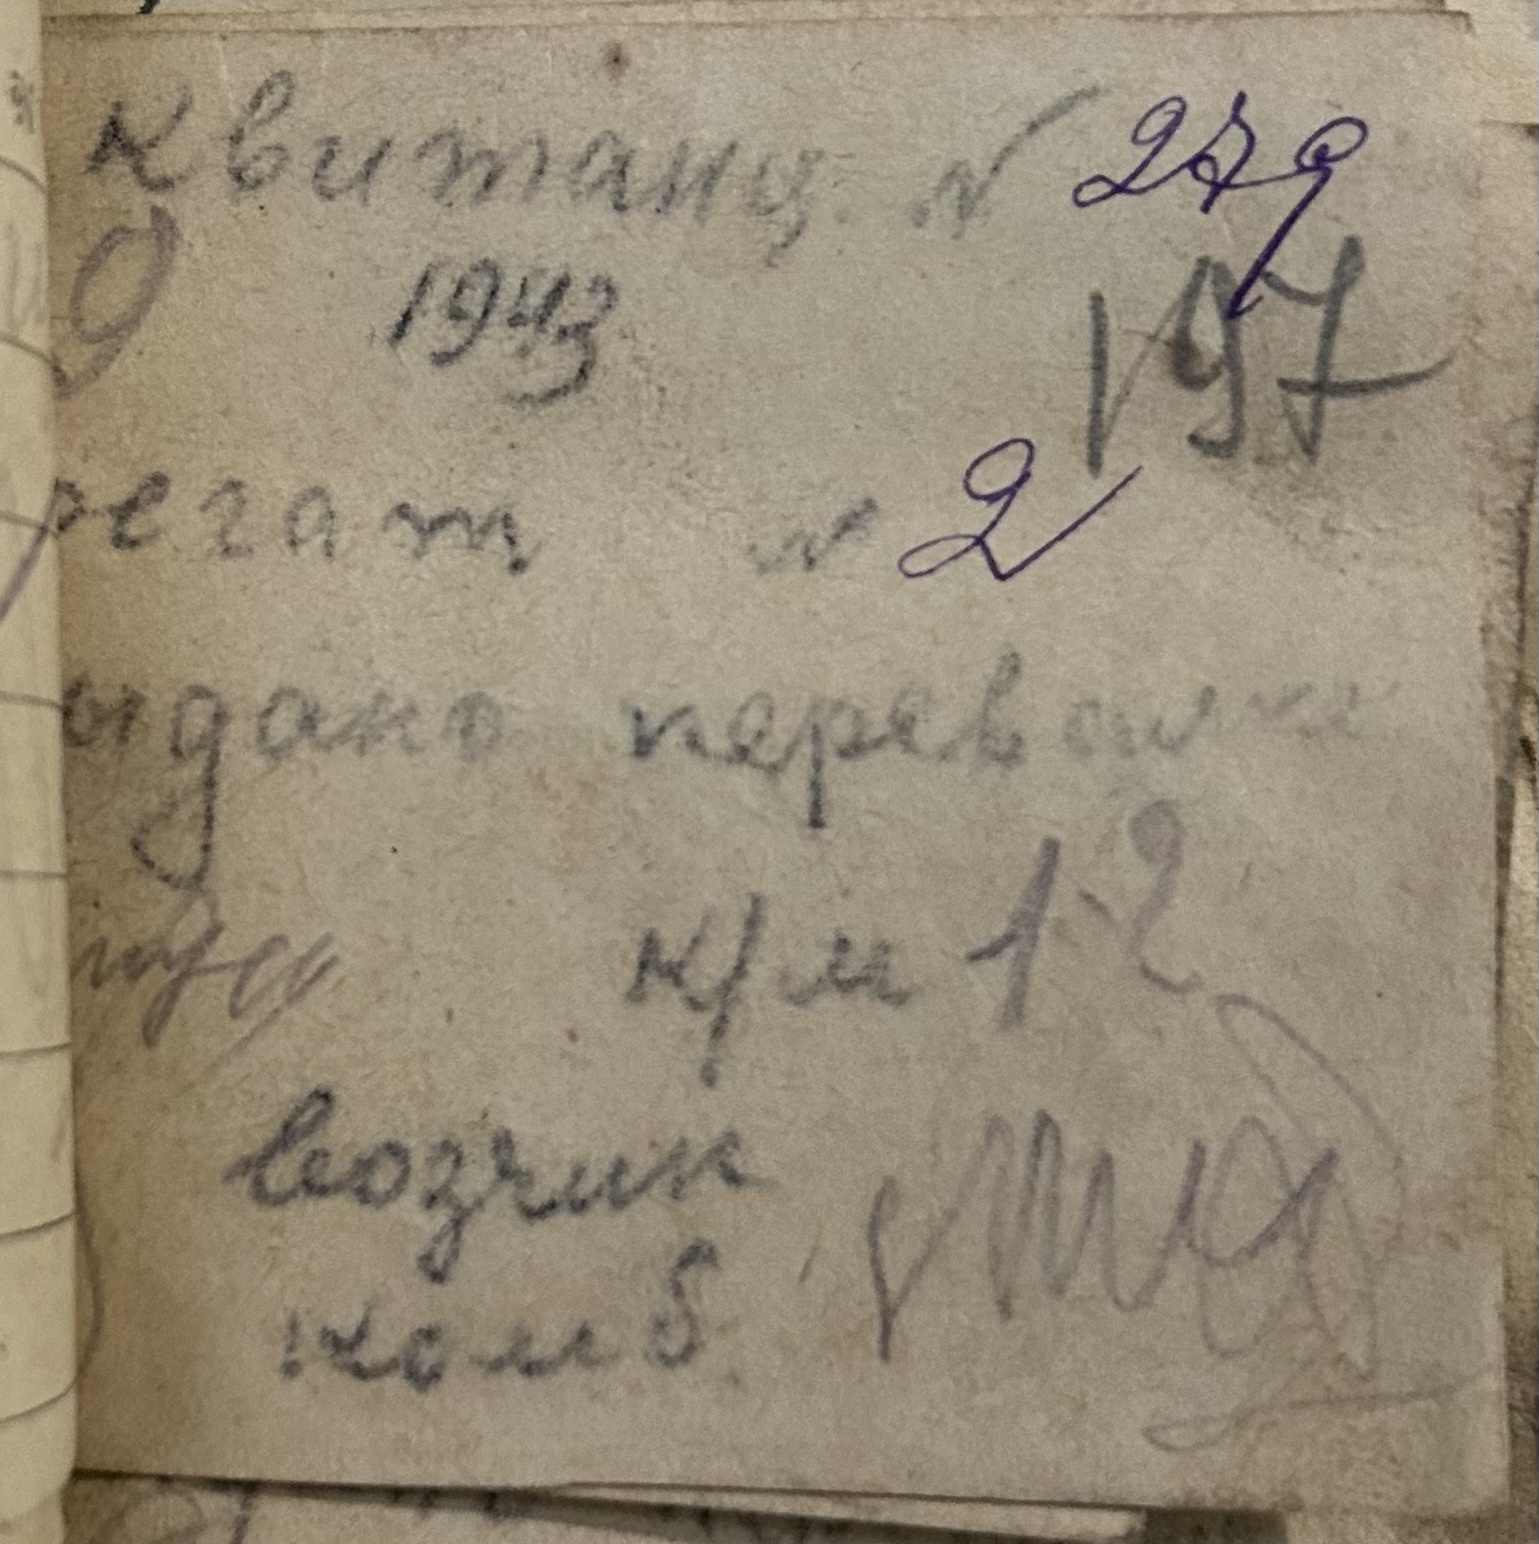 Квитанц. № 279
1943
197
регат № 2
ыдано перевозке
к/м 12
возчик
комб